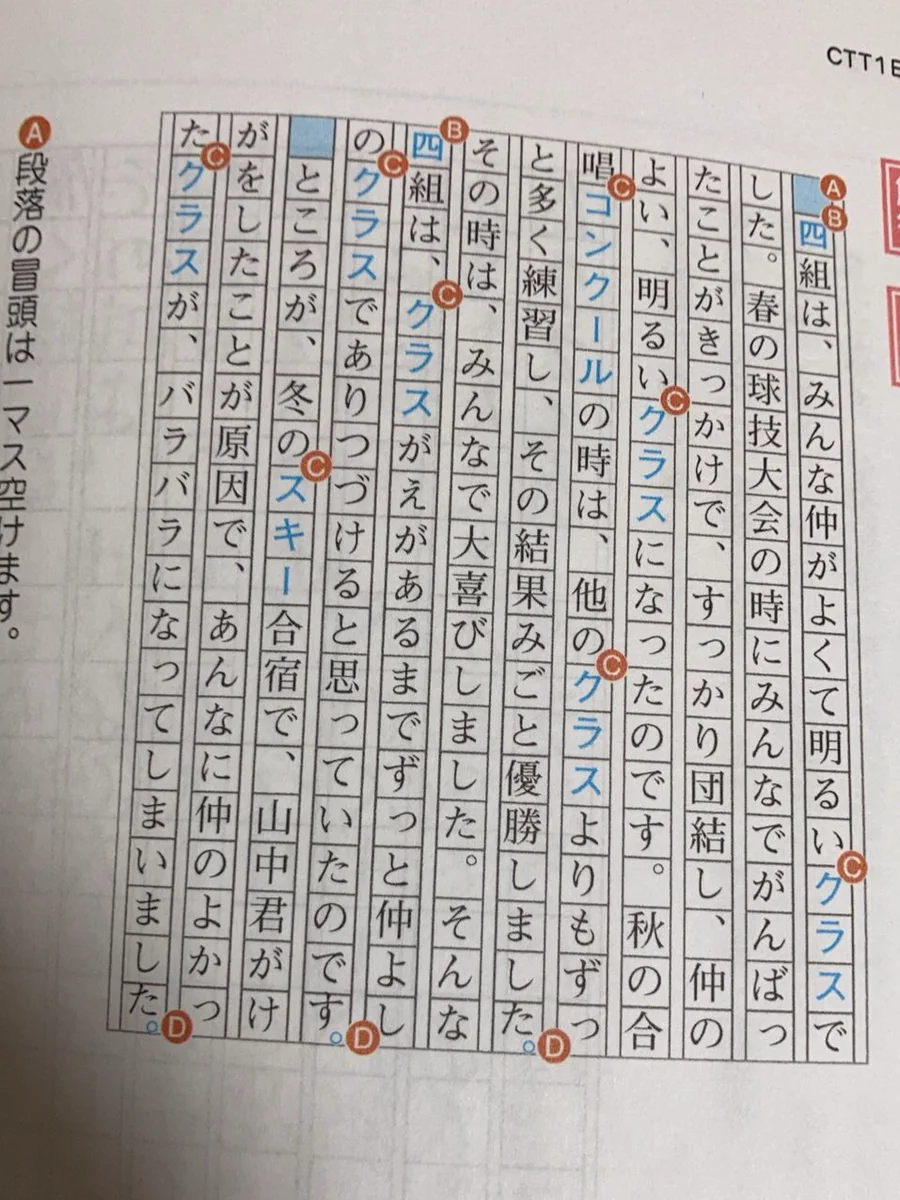 CTT1E
　四組は、みんな仲がよくて明るいクラスで
した。春の球技大会の時にみんなでがんばっ
たことがきっかけで、すっかり団結し、仲の
よい、明るいクラスになったのです。秋の合
唱コンクールの時は、他のクラスよりもずっ
と多く練習し、その結果みごと優勝しました。
その時は、みんなで大喜びしました。そんな
四組は、クラスがえがあるまでずっと仲よし
のクラスでありつづけると思っていたのです。
　ところが、冬のスキー合宿で、山中君がけ
がをしたことが原因で、あんなに仲のよかっ
たクラスが、バラバラになってしまいました。
A B
C
C
C C
D
B C
C D
C
C D
A 段落の冒頭は一マス空けます。